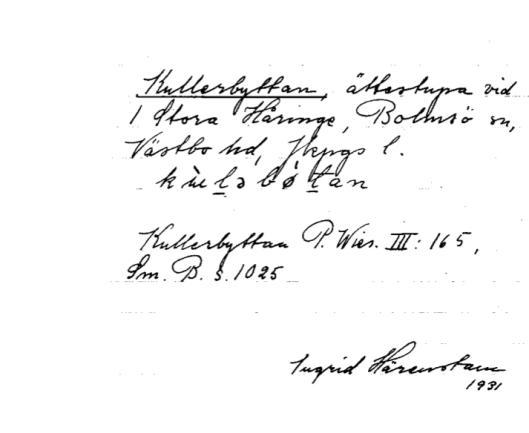 Kullerbyttan, ättestupa vid
1 Stora Håringe, Bolmsö sn,
Västbo hd, Jkpgs l.
kùl̠əbøt̠an
Kullerbyttan P. Wies. III: 165,
Sm. B. s. 1025
Ingrid Härenstam
1931